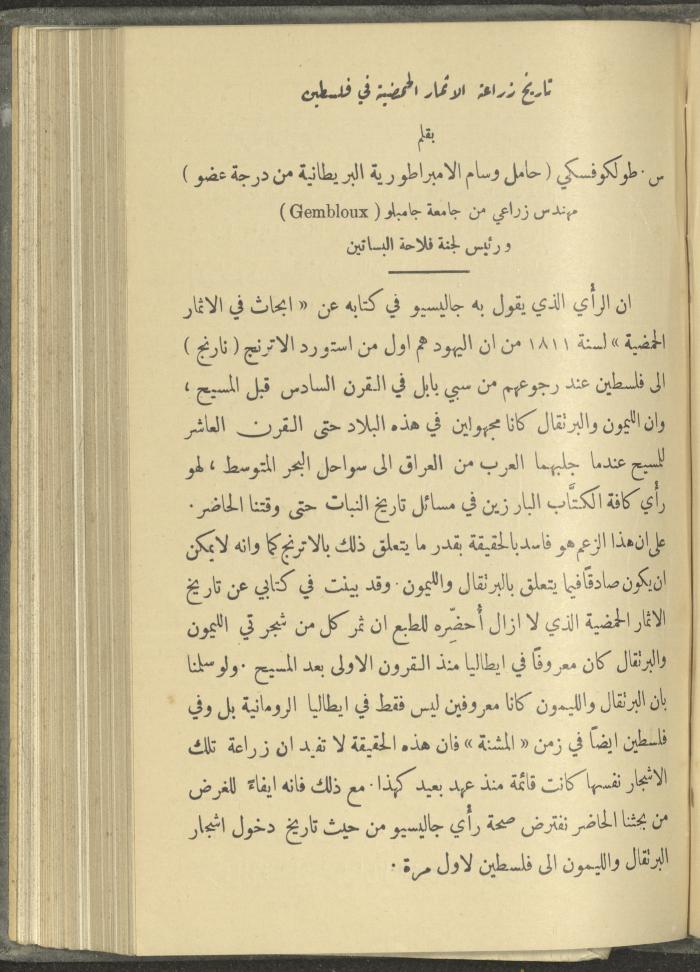 تاريخ زراعة الاثمار الحمضية في فلسطين
بقلم
س . طولكوفسكي ( حامل وسام الامبراطورية البريطانية من درجة عضو )
مهندس زراعي من جامعة جامبلو ( Gembloux )
ورئيس لجنة فلاحة البساتين
ان الرأي الذي يقول به جاليسيو في كتابه عن « ابحاث في الاثمار
الحمضية » لسنة ١٨١١ من ان اليهود هم اول من استورد الاترنج ( نارنج )
الى فلسطين عند رجوعهم من سبي بابل في القرن السادس قبل المسيح ،
وان الليمون والبرتقال كانا مجهولين في هذه البلاد حتى القرن العاشر
للمسيح عندما جلبهما العرب من العراق الى سواحل البحر المتوسط ، لهو
رأي كافة الكتَّاب البارزين في مسائل تاريخ النبات حتى وقتنا الحاضر .
على ان هذا الزعم هو فاسد بالحقيقة بقدر ما يتعلق ذلك بالاترنج كما وانه لا يمكن
ان يكون صادقاً فيما يتعلق بالبرتقال والليمون . وقد بينت في كتابي عن تاريخ
الاثمار الحمضية الذي لا ازال أحضِّره للطبع ان ثمر كل من شجرتي الليمون
والبرتقال كان معروفاً في ايطاليا منذ القرون الاولى بعد المسيح . ولو سلمنا
بان البرتقال والليمون كانا معروفين ليس فقط في ايطاليا الرومانية بل وفي
فلسطين ايضاً في زمن « المشنة » فان هذه الحقيقة لا تفيد ان زراعة تلك
الاشجار نفسها كانت قائمة منذ عهد بعيد كهذا . مع ذلك فانه ايفاءً للغرض
من بحثنا الحاضر نفترض صحة رأي جاليسيو من حيث تاريخ دخول اشجار
البرتقال والليمون الى فلسطين لاول مرة .